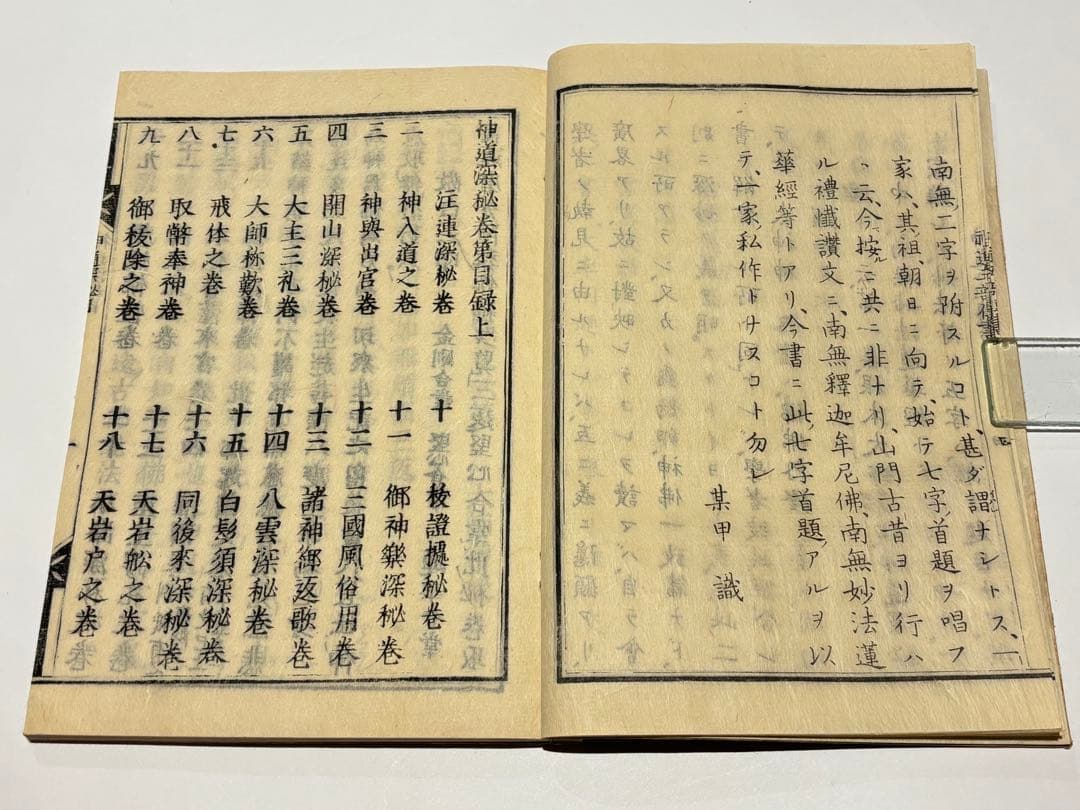 南無二字ヲ附スルコト、甚ダ謂ナシトス、一
家ハ、其祖、朝日ニ向テ、始テ七字首題ヲ唱フ
ト云、今按ニ、共ニ非ナリ、山門古昔ヨリ行ハ
ル禮懺讃文ニ、南無釋迦牟尼佛、南無妙法蓮
華經等トアリ、今書ニ此七字首題アルヲ以
テ、一家私作トナスコト勿レ
某甲 識
神道深秘卷第目録上
二 注連深秘卷
神入道之卷
三 神輿出官卷
四 開山深秘卷
五 大主三礼卷
六 大師称歎卷
七 戒体之卷
八 取幣奉神卷
九 御秡除之卷
十 校證擬秘卷
十一 御神樂深秘卷
十二 三國風俗用卷
十三 諸神御返歌卷
十四 八雲深秘卷
十五 白髭須深秘卷
十六 同後來深秘卷
十七 天岩舩之卷
十八 天岩戸之卷